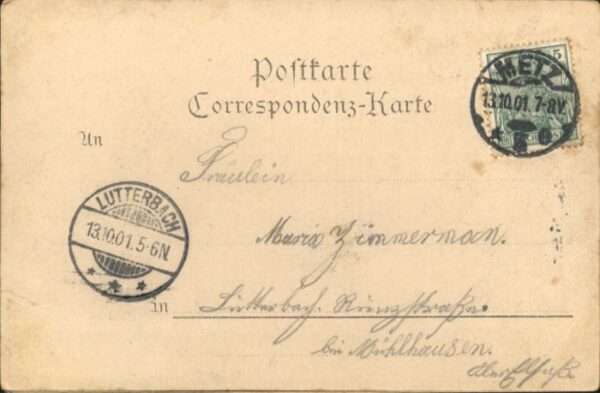 Postkarte
Correspondenz-Karte
5
METZ
13.10.01. 7-8V.
An
Fräulein
LUTTERBACH
13.10.01. 5-6N.
Maria Zimmerman.
in Lutterbach.
bei Mühlhausen.